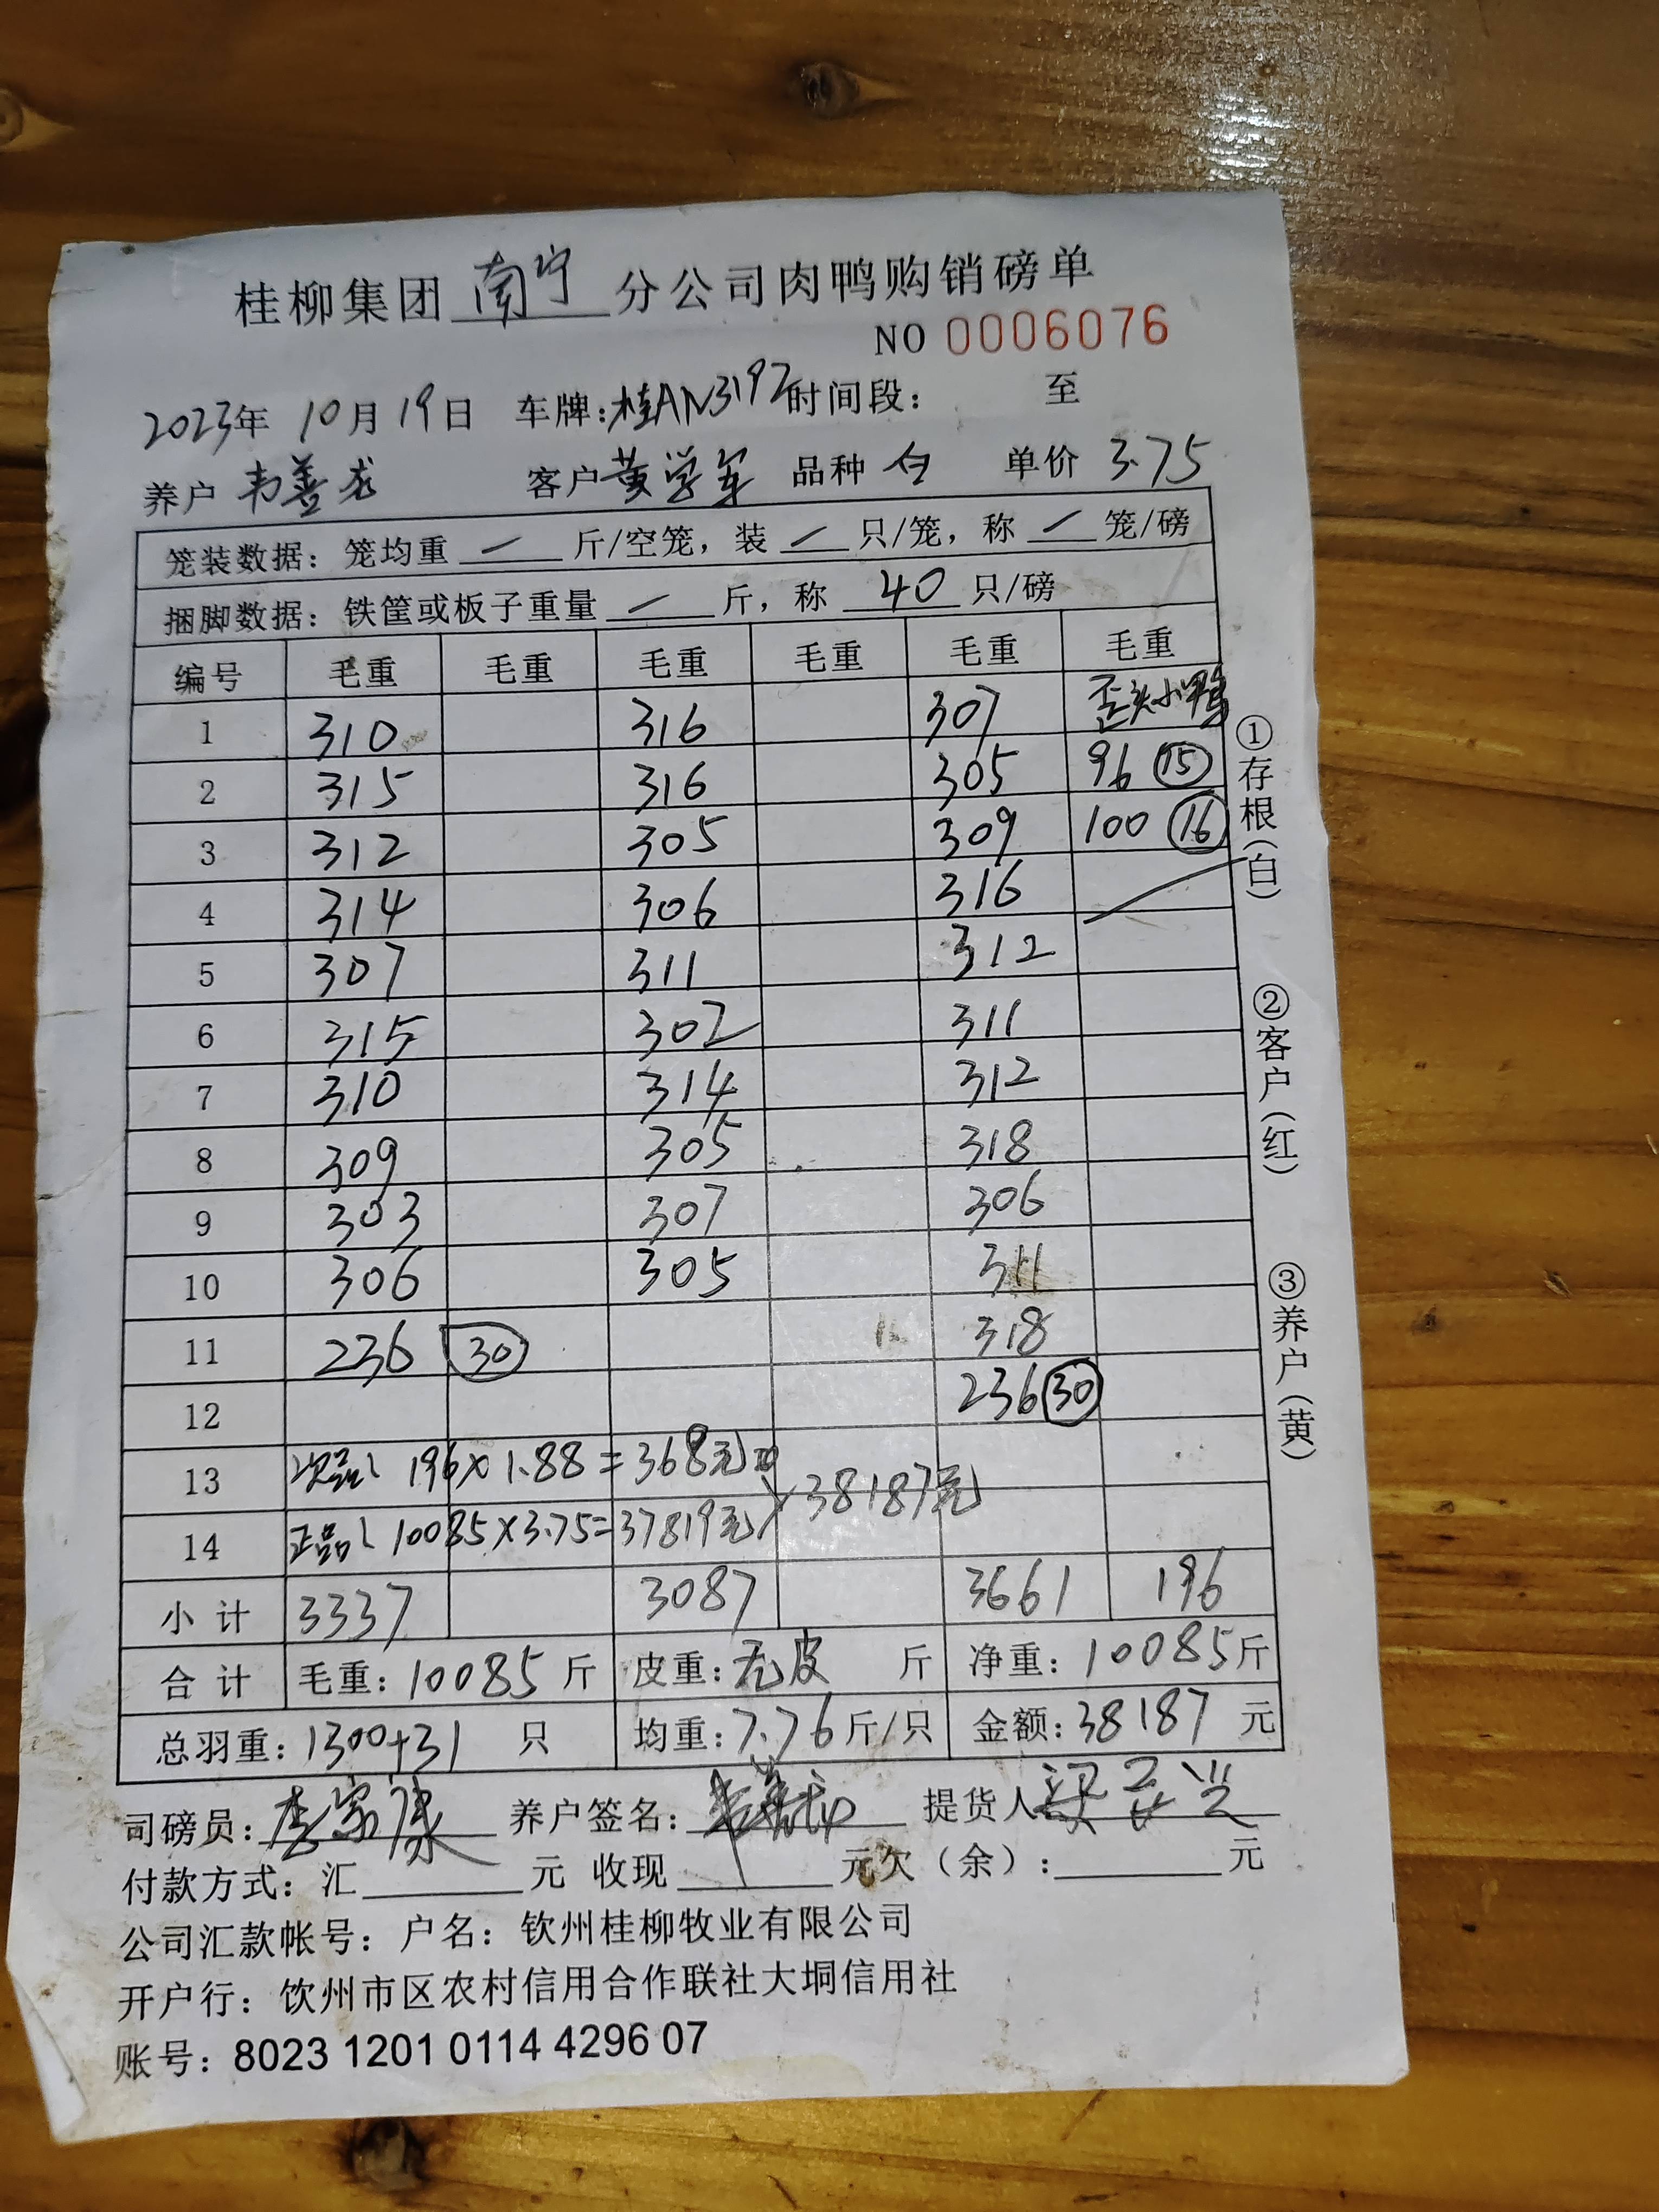 桂柳集团 南宁 分公司肉鸭购销磅单
NO 0006076
2023年 10月 19日 车牌:桂AN3192 时间段: 至
养户 韦善龙 客户 黄学军 品种 白 单价 3.75
笼装数据: 笼均重 / 斤/空笼, 装 / 只/笼, 称 / 笼/磅
捆脚数据: 铁筐或板子重量 / 斤, 称 40 只/磅
编号 毛重 毛重 毛重 毛重 毛重 毛重
1 310 316 307 歪头小鸭
2 315 316 305 96 ⑮
3 312 305 309 100 ⑯
4 314 306 316
5 307 311 312
6 315 302 311
7 310 314 312
8 309 305 318
9 303 307 306
10 306 305 311
11 236 ㉚ 318
12 236 ㉚
13 次品: 196×1.88=368元
38187元
14 正品: 10085×3.75=37819元
小计 3337 3087 3661 196
合计 毛重: 10085 斤 皮重: 无皮 斤 净重: 10085斤
总羽重: 1300+31 只 均重: 7.76斤/只 金额: 38187 元
司磅员: 李家康 养户签名: 提货人
付款方式: 汇 元 收现 元欠(余): 元
公司汇款帐号: 户名: 钦州桂柳牧业有限公司
开户行: 钦州市区农村信用合作联社大垌信用社
账号: 8023 1201 0114 4296 07
①存根(白)
②客户(红)
③养户(黄)